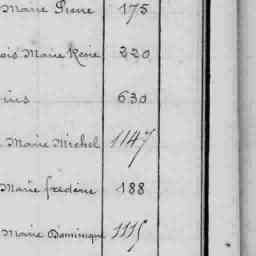 Marie Pierre 175
ois Marie René 220
630
Marie Michel 1147
Marie frédéric 188
Marie Dominique 1115